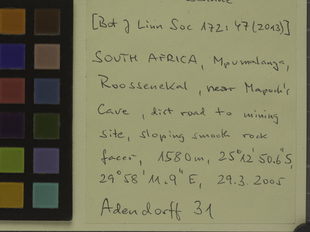 [Bot J Linn Soc 172: 47 (2013)]
SOUTH AFRICA, Mpumalanga,
Roossenekal, near Mapoch's
Cave, dirt road to mining
site, sloping smooth rock
faces, 1580m, 25°12'50.6"S,
29°58'11.9"E, 29.3.2005
Adendorff 31